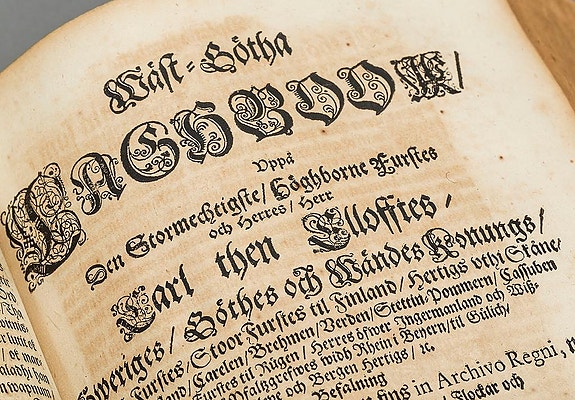 Wäst-Götha
LAGHBOOK/
Uppå
Den Stormechtigste/ Höghborne Furstes
och Herres/ Herr
Carl then Ellofftes,
Sweriges/ Göthes och Wändes Konungs/
Furstes/ Stoor Furstes til Finland/ Hertigs uthi Skåne/
Carelen/ Brehmen/ Verden/ Stettin/ Pommern/ Cassuben
Furstes til Rügen/ Herres öfwer Ingermanland och Wiß-
Pfaltzgrefwes widh Rhein i Beyern/ til Gülich/
och Bergen Hertigs/ ꝛc.
Befalning
fins in Archivo Regni,
Flockar och